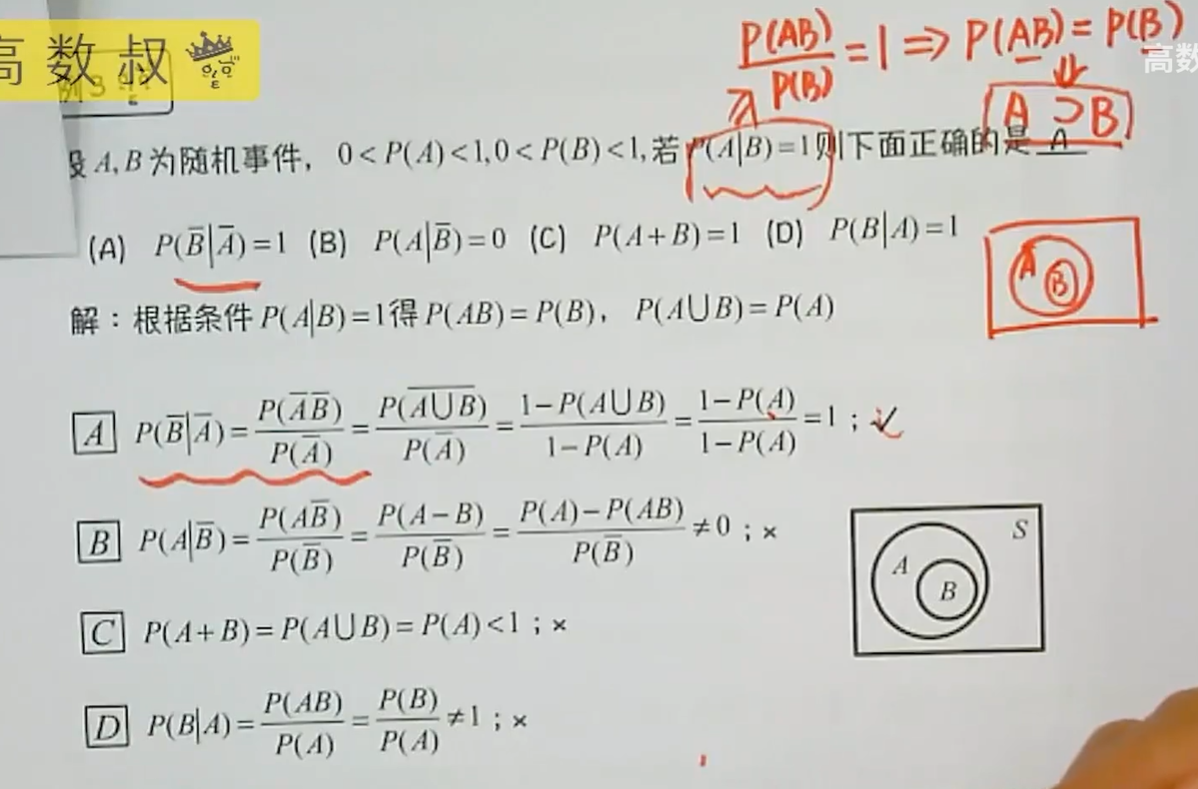 高数叔
P(AB)/P(B) = 1 ⇒ P(AB) = P(B)
高数
⇓
A ⊃ B
设 A, B 为随机事件, 0 < P(A) < 1, 0 < P(B) < 1, 若 P(A|B) = 1 则下面正确的是 A
(A) P(B̅|A̅) = 1 (B) P(A|B̅) = 0 (C) P(A+B) = 1 (D) P(B|A) = 1
A B
解:根据条件 P(A|B) = 1 得 P(AB) = P(B), P(A∪B) = P(A)
A P(B̅|A̅) = P(A̅ B̅)/P(A̅) = P(\overline{A∪B})/P(A̅) = (1−P(A∪B))/(1−P(A)) = (1−P(A))/(1−P(A)) = 1 ; ✓
B P(A|B̅) = P(AB̅)/P(B̅) = P(A−B)/P(B̅) = (P(A)−P(AB))/P(B̅) ≠ 0 ; ×
S
A B
C P(A+B) = P(A∪B) = P(A) < 1 ; ×
D P(B|A) = P(AB)/P(A) = P(B)/P(A) ≠ 1 ; ×